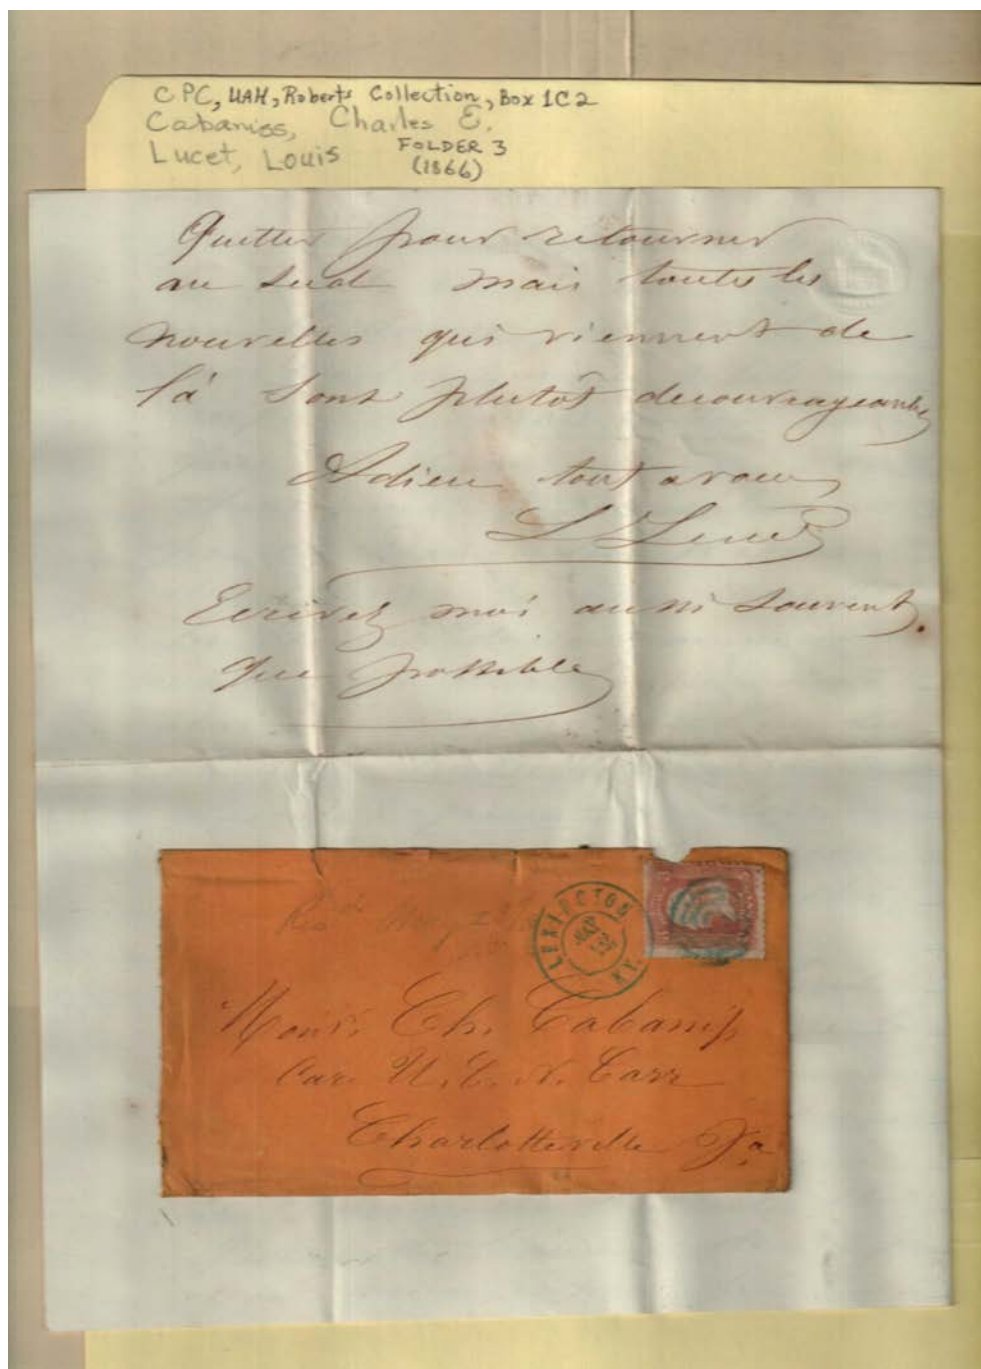 CPC, UAH, Roberts Collection, Box 1C2
Cabaniss, Charles E.
Lucet, Louis FOLDER 3
(1866)
Quitter pour retourner
au sud mais toutes les
nouvelles qui viennent de
là sont plutôt decourageantes
Adieu tout a vous
L Lucet
Ecrivez moi aussi souvent
que possible
LEXINGTON
MAY
KY.
Monsr. Ch. Cabaniss
Care N. C. N. Carr
Charlotteville Va